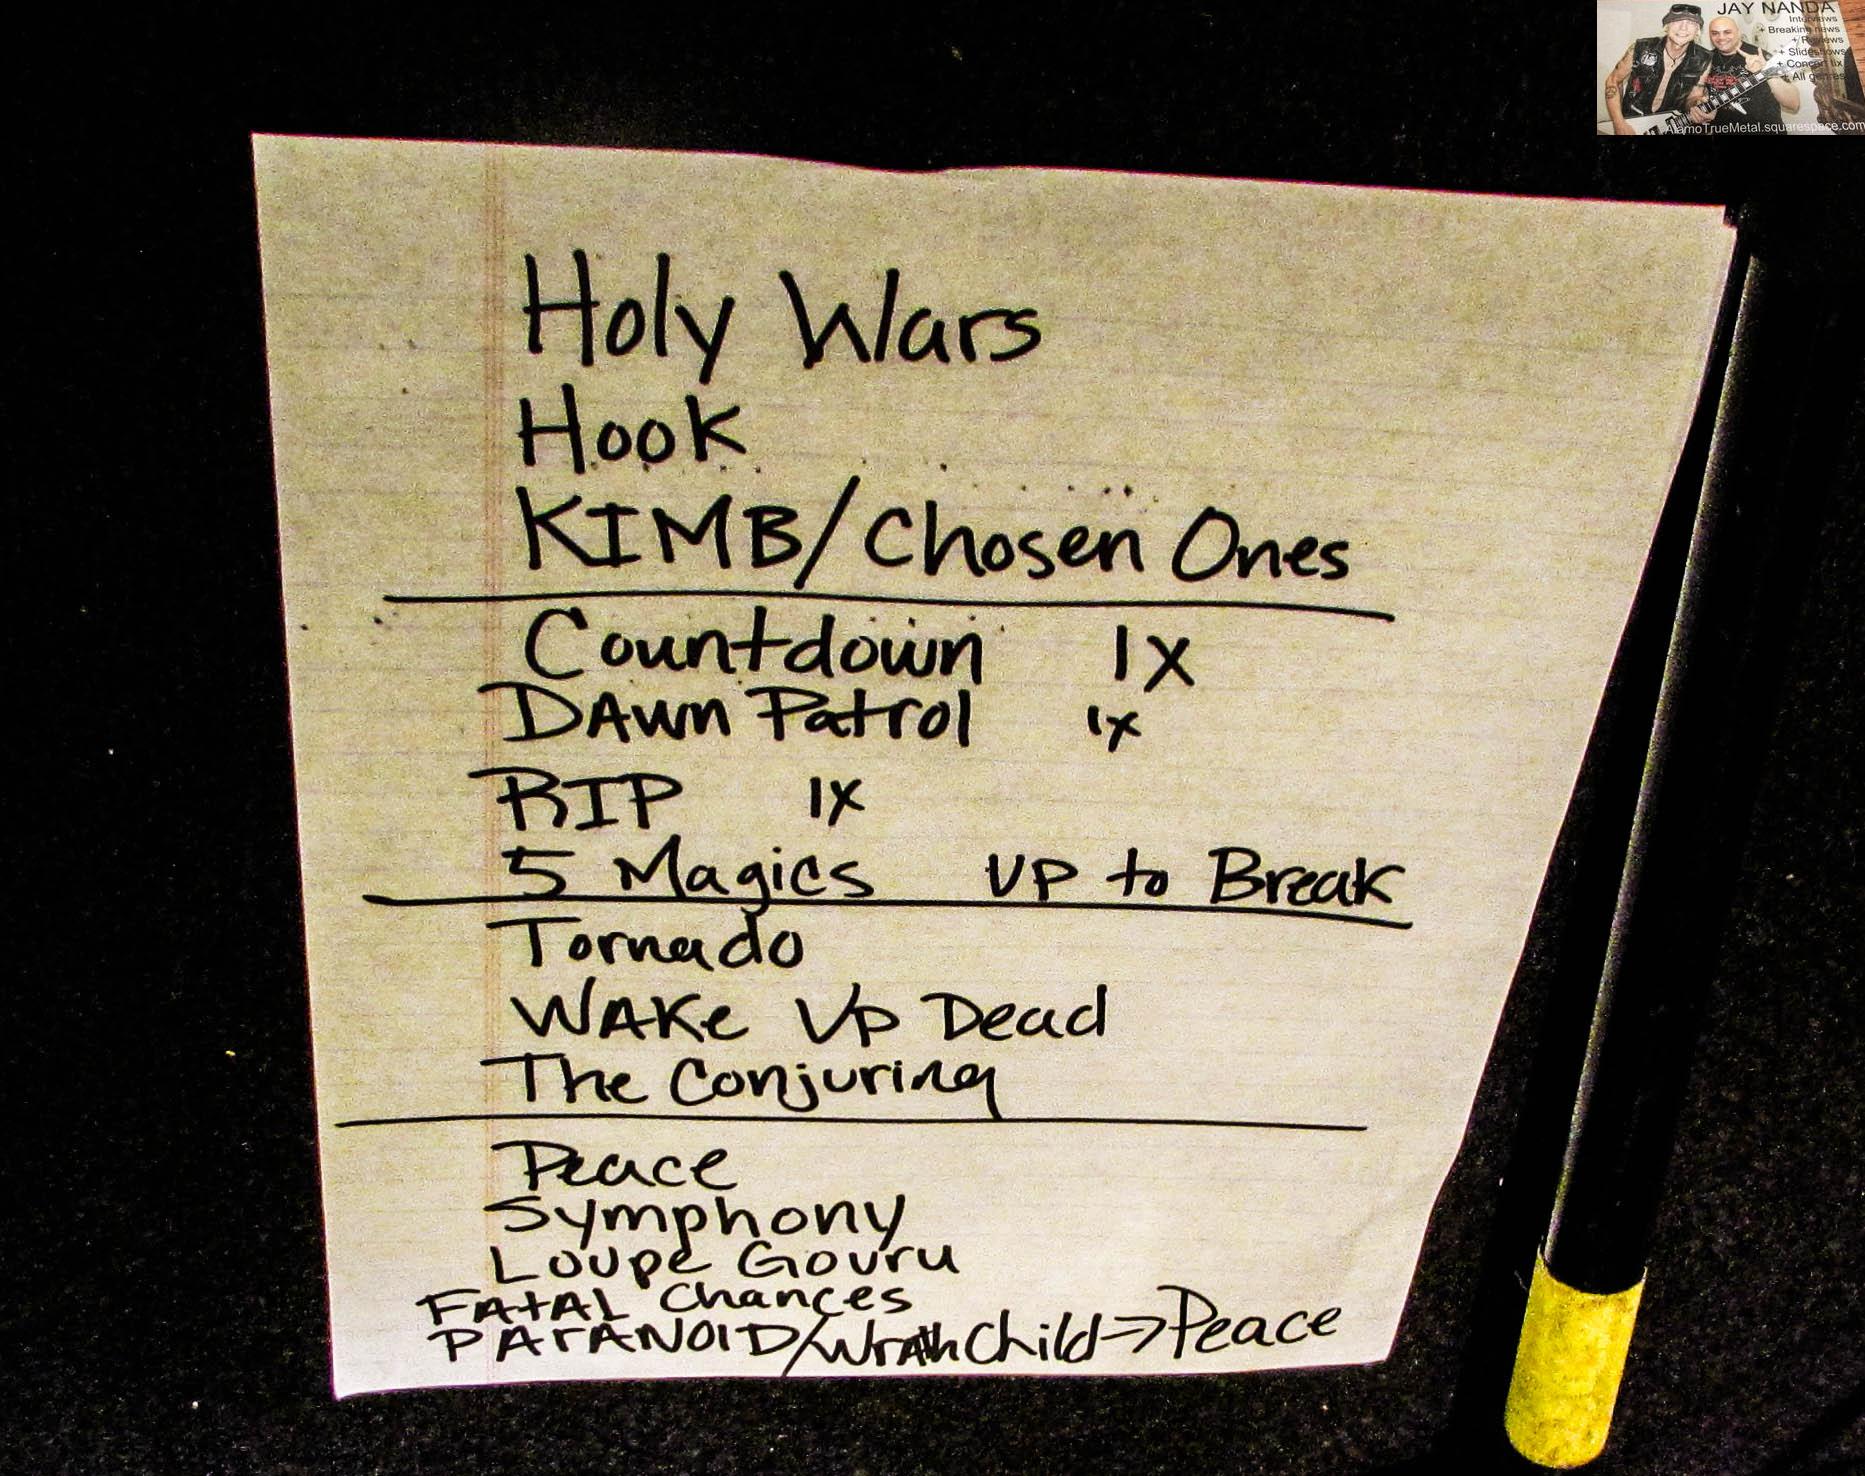 JAY NANDA
Interviews
+ Breaking news
+ Reviews
+ Slideshows
+ Concert tix
+ All genres
AlamoTrueMetal.squarespace.com
Holy Wars
Hook
KIMB/Chosen Ones
Countdown 1X
DAwn Patrol 1x
RIP 1X
5 Magics UP to Break
Tornado
WAKe Up Dead
The Conjuring
Peace
Symphony
Loupe Gouru
FAtAL Chances
PArANOID/WrAth Child → Peace